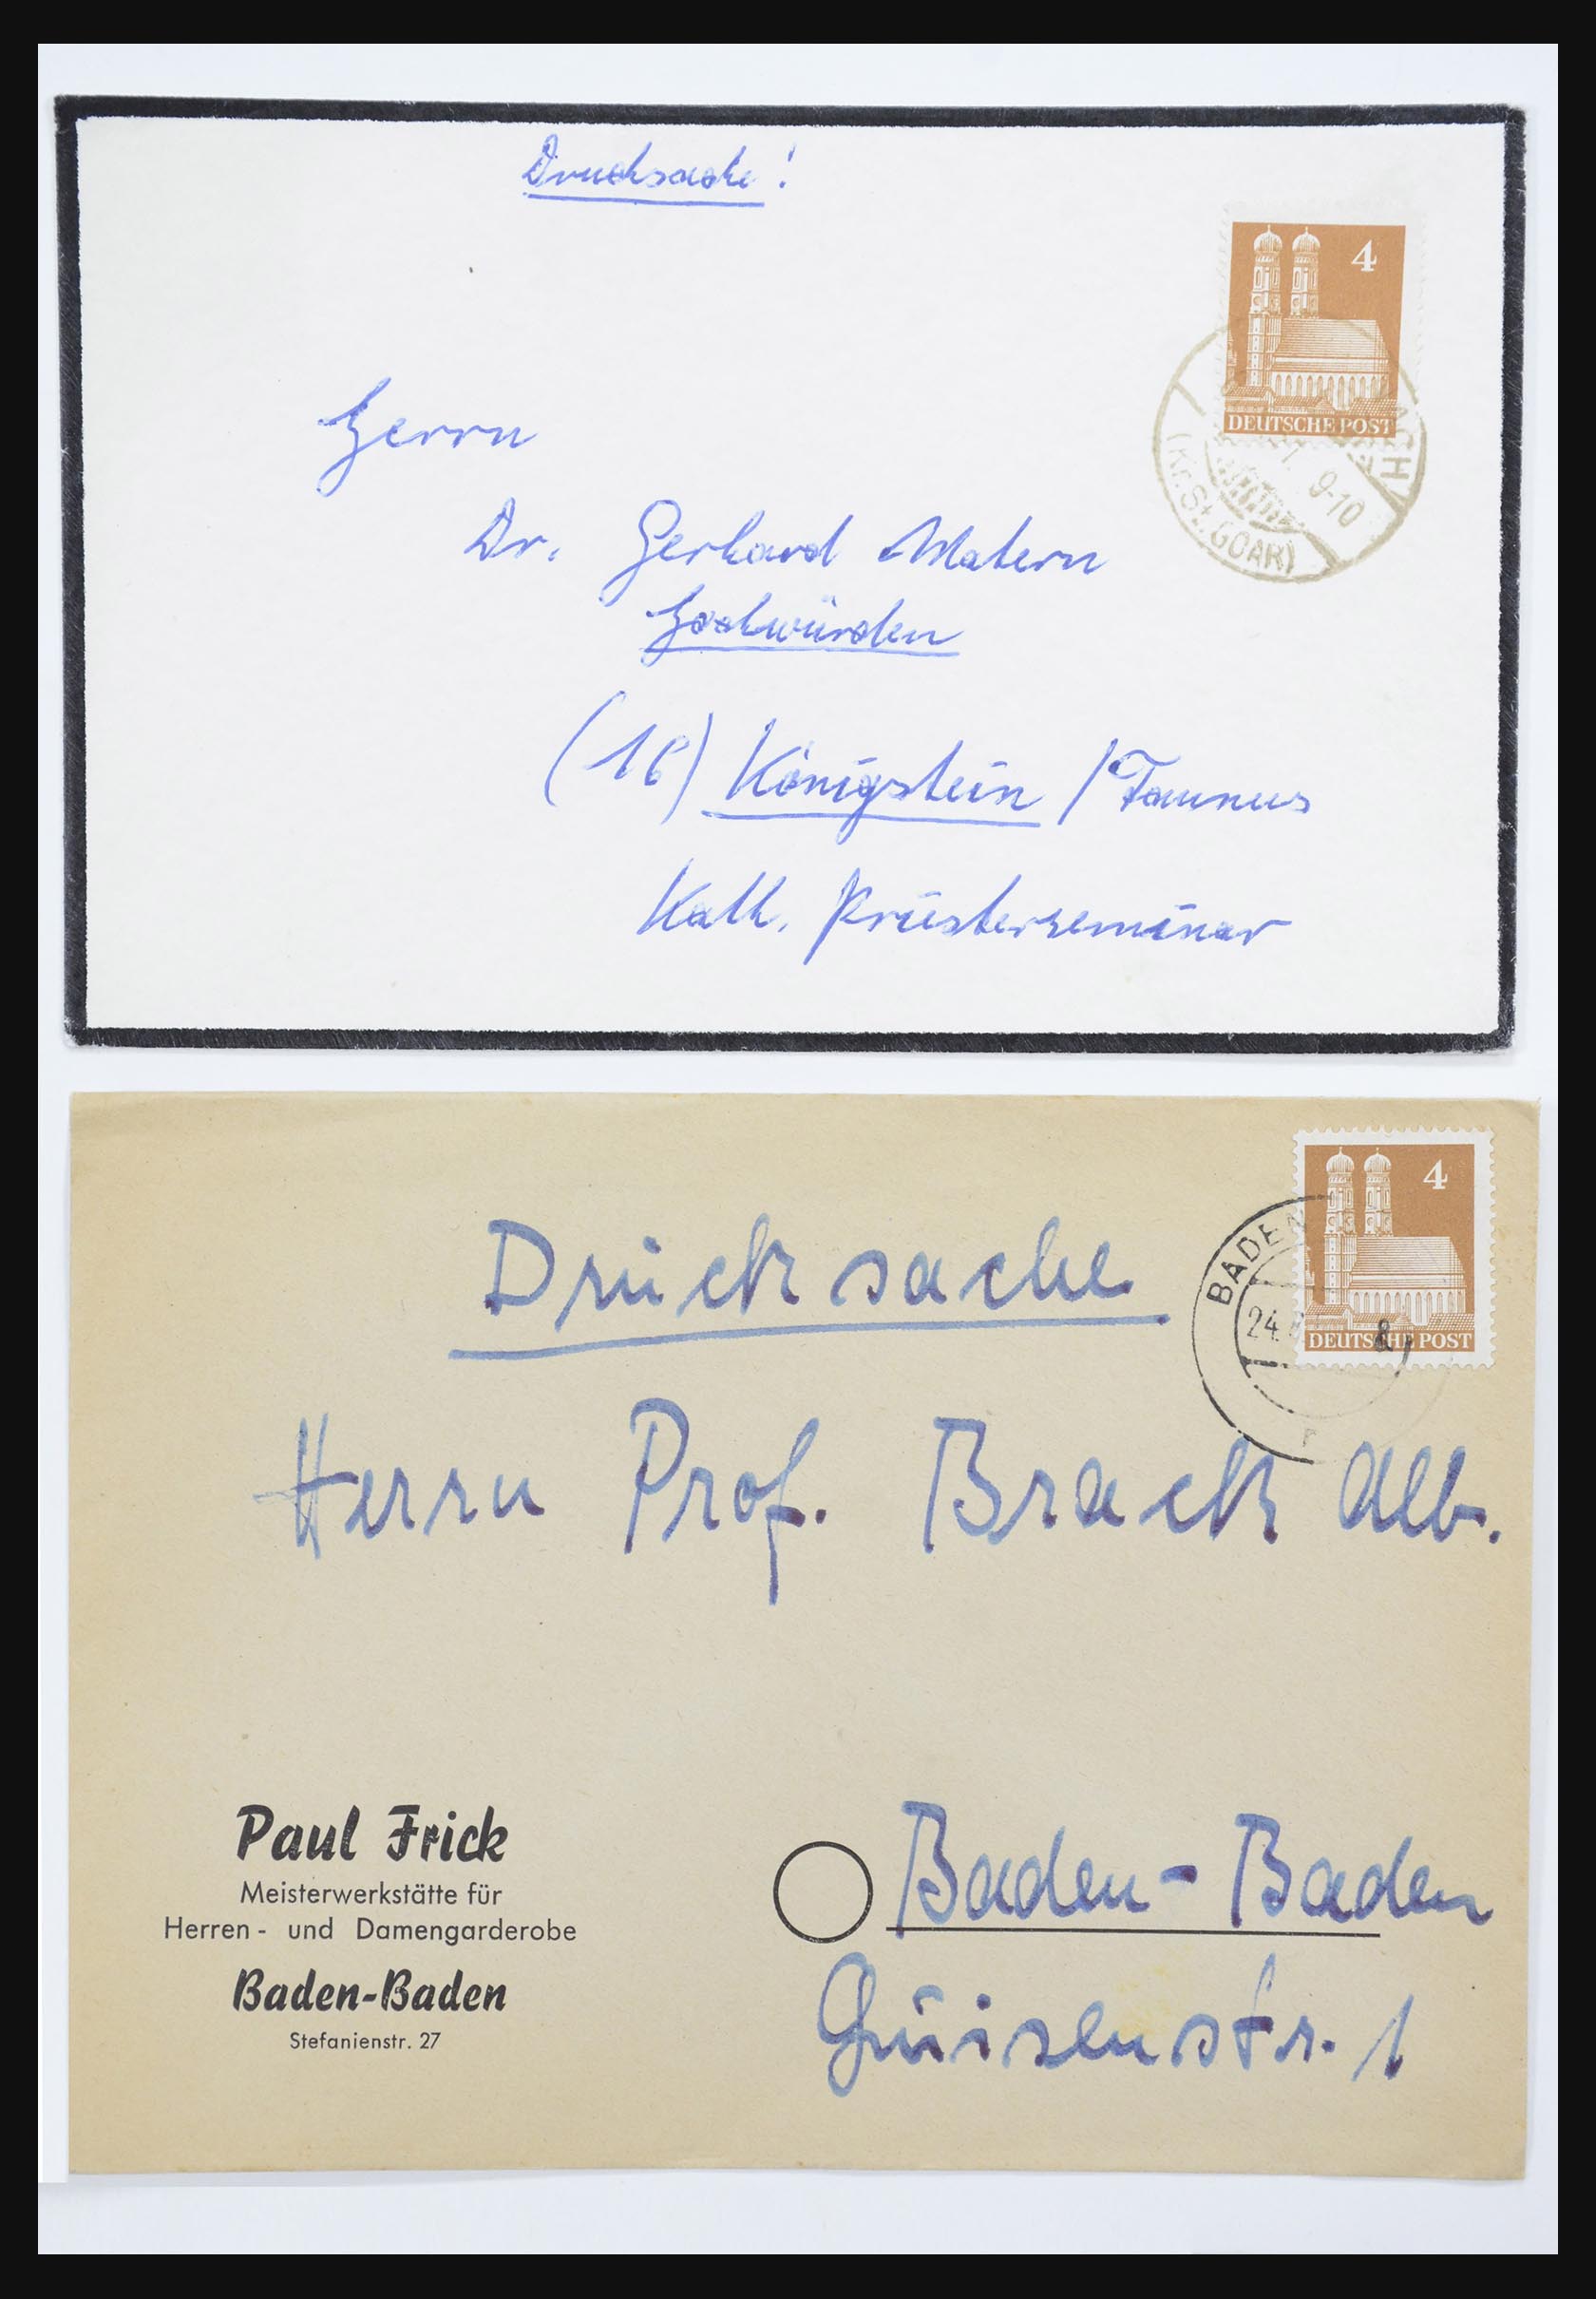 Drucksache!
4
DEUTSCHE POST
9-10
(Kr. St. GOAR)
Herrn
Dr. Gerhard Matern
Hochwürden
(16) Königstein / Taunus
Kath. Priesterseminar
4
DEUTSCHE POST
BADEN
24.
Drucksache
Herrn Prof. Brack Alb.
Paul Frick
Meisterwerkstätte für
Herren- und Damengarderobe
Baden-Baden
Stefanienstr. 27
Baden-Baden
1